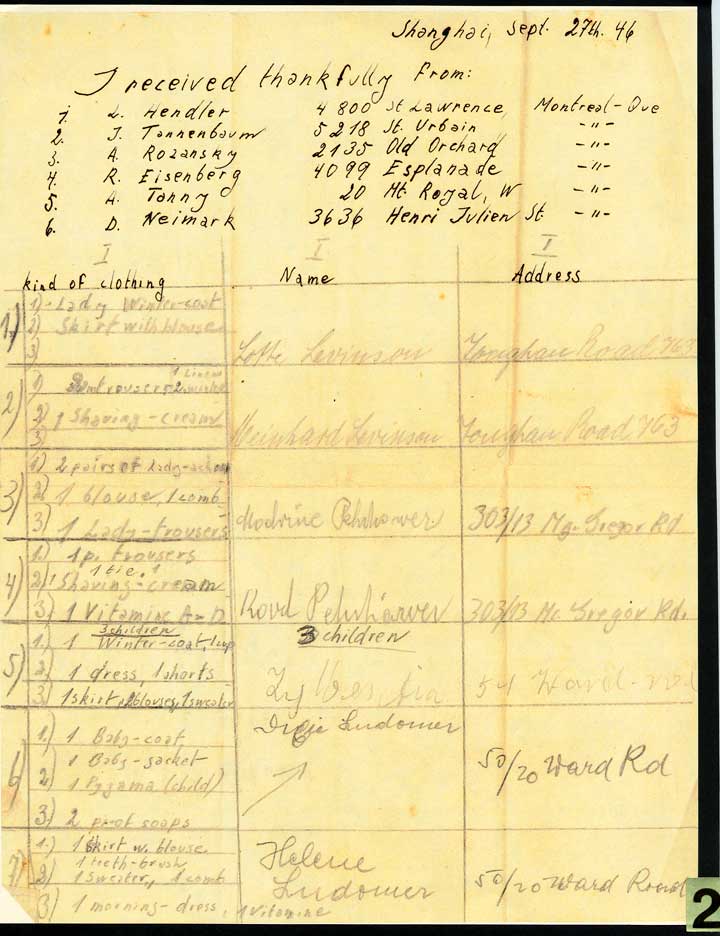 Shanghai, Sept. 27th. 46
I received thankfully from:
1. L. Hendler 4800 St Lawrence, Montreal-Que
2. J. Tannenbaum 5218 St. Urbain -"-
3. A. Rozansky 2135 Old Orchard -"-
4. R. Eisenberg 4099 Esplanade -"-
5. A. Tanny 20 Mt. Royal, W -"-
6. D. Neimark 3636 Henri Julien St. -"-
I I I
kind of clothing Name Address
1) 1) Lady Winter-coat
2) Skirt with blouse
3)
Lotte Levinson Tongshan Road 763
2) 1) trousers 1 Linen
2) 1 Shaving-cream
3)
Meinhard Levinson Tongshan Road 763
3) 1) 2 pairs of Lady-
2) 1 blouse, 1 comb
3) 1 Lady-trousers
303/13 Mc. Gregor Rd
4) 1.) 1 p. trousers
1 tie, 1
2) 1 Shaving-cream
3) 1 Vitamine A-D
303/13 Mc Gregor Rd.
5) 3 children 3 children
1.) 1 Winter-coat, 1 cup
2) 1 dress, 1 shorts
3) 1 skirt, 2 blouses, 1 sweater
54 Ward-
6) 1.) 1 Baby-coat
Ludomer
2) 1 Baby-jacket
1 Pyjama (child)
50/20 Ward Rd
3.) 2 p. of soaps
7) 1.) 1 Skirt w. blouse
1 teeth-brush
2) 1 sweater, 1 comb
Helene
Ludomer
50/20 Ward Road
3) 1 morning-dress, 1 Vitamine
2